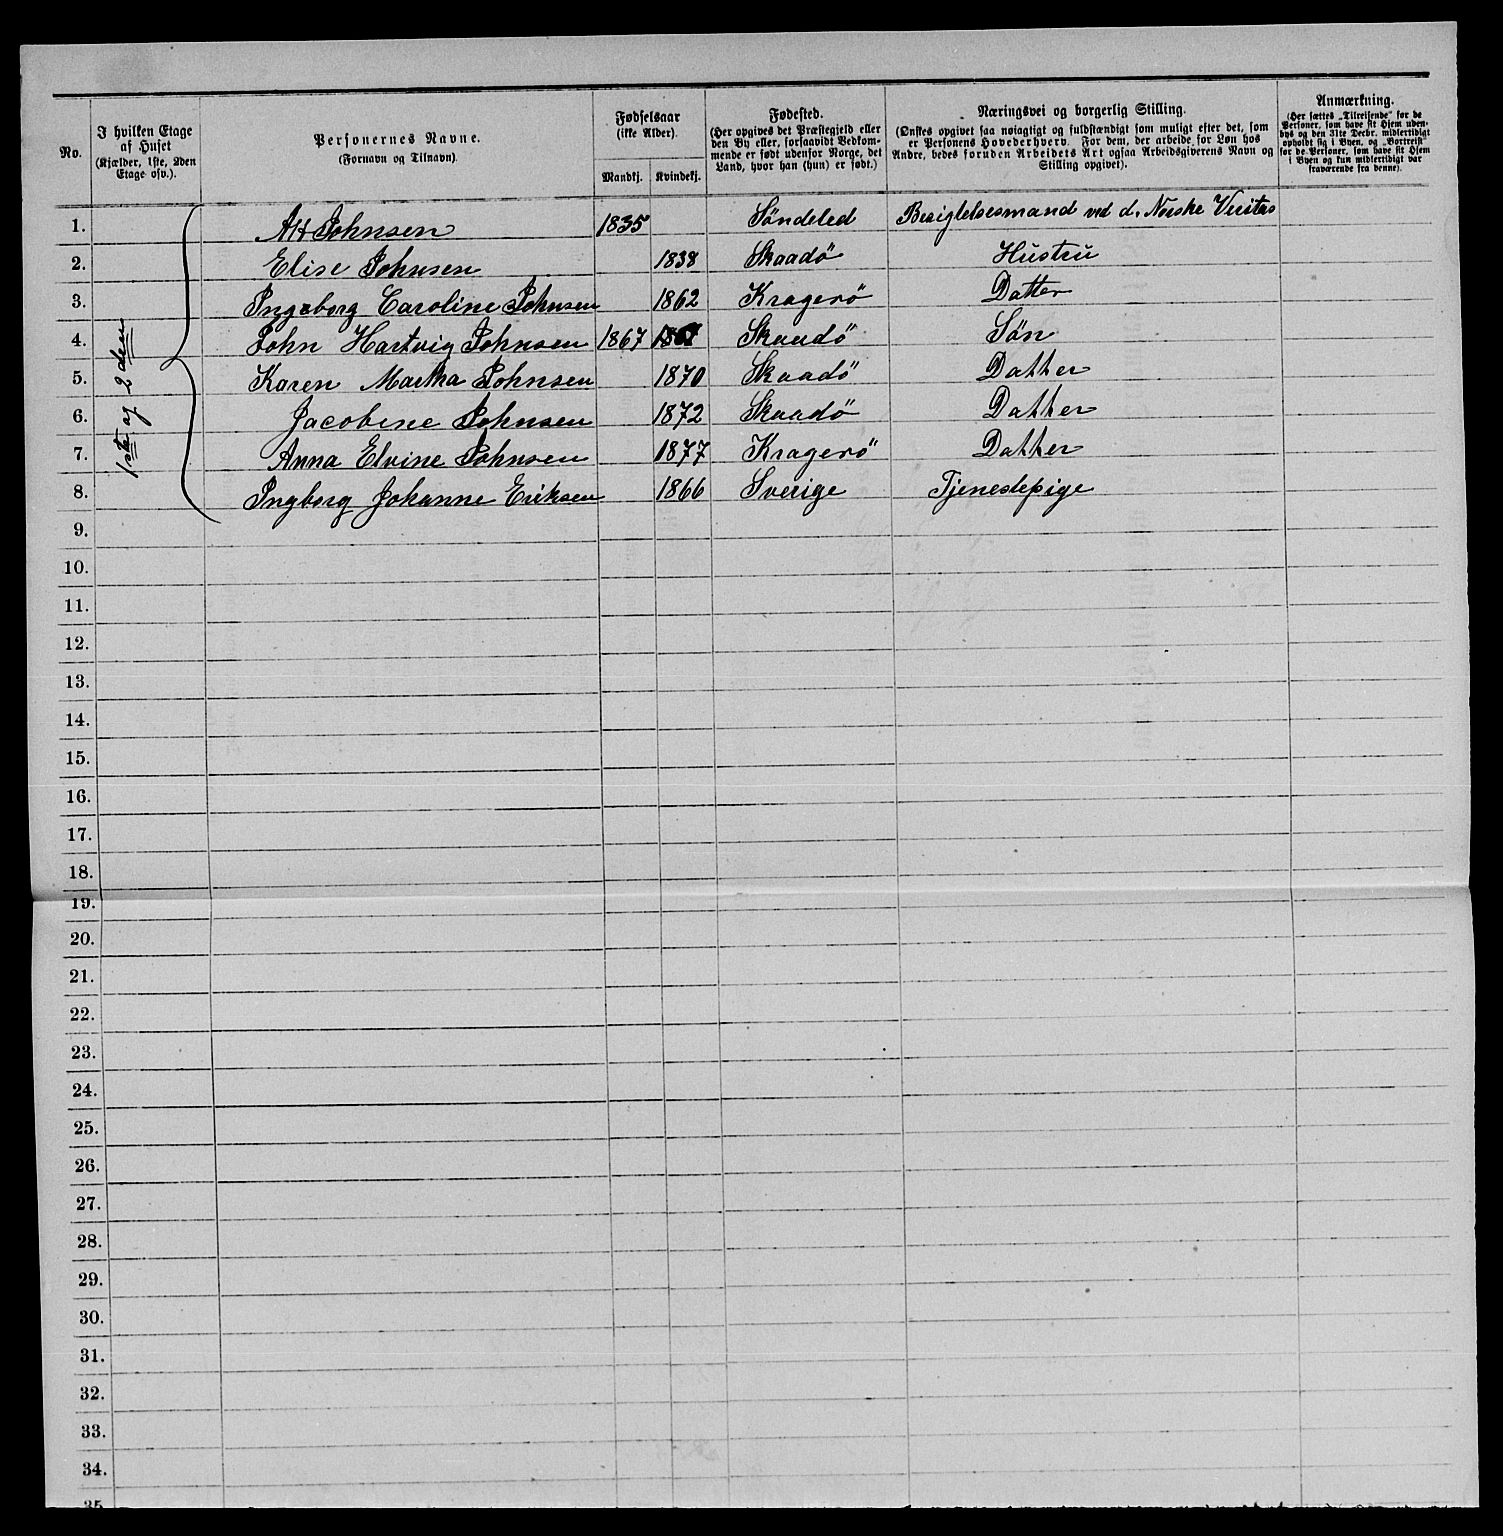 No.
I hvilken Etage
af Huset
(Kjælder, 1ste, 2den
Etage osv.).
Personernes Navne.
(Fornavn og Tilnavn).
Fødselsaar
(ikke Alder).
Mandkj. Kvindekj.
Fødested.
(Her opgives det Præstegjeld eller
den By eller, forsaavidt Bedkom-
mende er født udenfor Norge, det
Land, hvor han (hun) er født.)
Næringsvei og borgerlig Stilling.
(Ønskes opgivet saa nøiagtigt og fuldstændigt som muligt efter det, som
er Personens Hovederhverv. For dem, der arbeide for Løn hos
Andre, bedes foruden Arbeidets Art ogsaa Arbeidsgiverens Navn og
Stilling opgivet).
Anmærkning.
(Her sættes „Tilreisende“ for de
Personer, som have sit Hjem uden-
bys og den 31te Decbr. midlertidigt
opholdt sig i Byen, og „Bortreist“
for de Personer, som have sit Hjem
i Byen og kun midlertidigt var
fraværende fra denne).
1ste og 2den
1. Johnsen 1835 Söndeled Besigtelsesmand ved d. Norske Veritas
2. Elise Johnsen 1838 Skaadö Hustru
3. Ingeborg Caroline Johnsen 1862 Kragerö Datter
4. John Hartvig Johnsen 1867 1867 Skaadö Sön
5. Karen Martha Johnsen 1870 Skaadö Datter
6. Jacobine Johnsen 1872 Skaadö Datter
7. Anna Elvine Johnsen 1877 Kragerö Datter
8. Ingborg Johanne Eriksen 1866 Sverige Tjenestepige
9.
10.
11.
12.
13.
14.
15.
16.
17.
18.
19.
20.
21.
22.
23.
24.
25.
26.
27.
28.
29.
30.
31.
32.
33.
34.
35